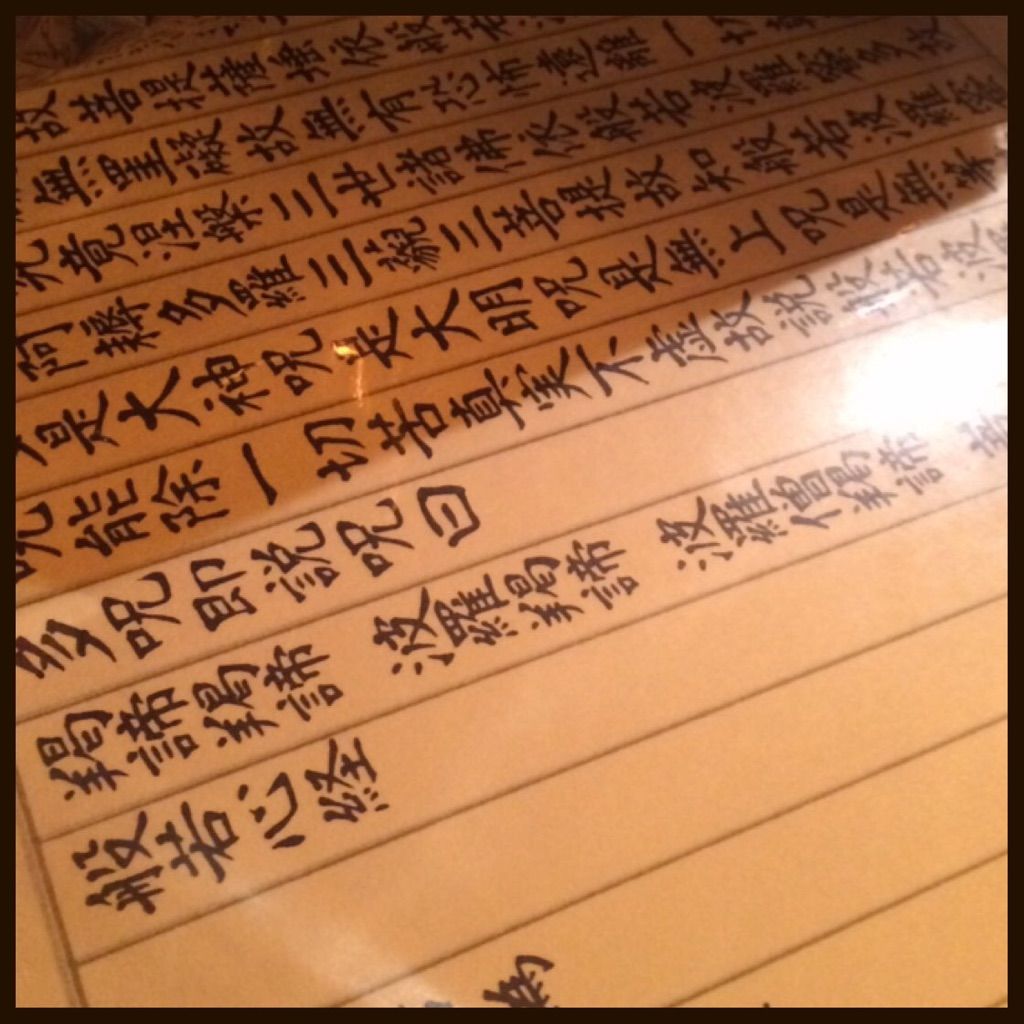 故菩提薩埵依般若
無罣礙故無有恐怖遠離一切
究竟涅槃三世諸佛依般若波羅蜜多故
阿耨多羅三藐三菩提故知般若波羅蜜
是大神呪是大明呪是無上呪是無等
呪能除一切苦真実不虚故説般若波羅
多呪即説呪曰
羯諦羯諦 波羅羯諦 波羅僧羯諦 菩
般若心経
為